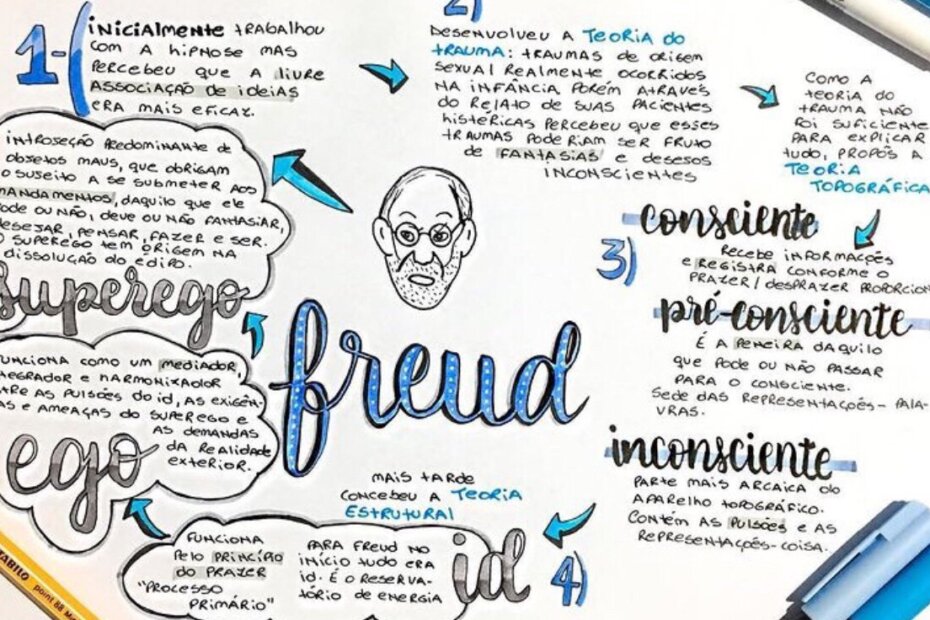 1-
INICIALMENTE TRABALHOU
COM A HIPNOSE MAS
PERCEBEU QUE A LIVRE
ASSOCIAÇÃO DE IDEIAS
ERA MAIS EFICAZ.
2)
DESENVOLVEU A TEORIA DO
TRAUMA: TRAUMAS DE ORIGEM
SEXUAL REALMENTE OCORRIDOS
NA INFÂNCIA PORÉM ATRAVÉS
DO RELATO DE SUAS PACIENTES
HISTÉRICAS PERCEBEU QUE ESSES
TRAUMAS PODERIAM SER FRUTO
DE FANTASIAS E DESEJOS
INCONSCIENTES
COMO A
TEORIA DO
TRAUMA NÃO
FOI SUFICIENTE
PARA EXPLICAR
TUDO, PROPÔS A
TEORIA
TOPOGRÁFICA
3)
consciente
RECEBE INFORMAÇÕES
E REGISTRA CONFORME O
PRAZER/DESPRAZER
pré-consciente
É A PENEIRA DAQUILO
QUE PODE OU NÃO PASSAR
PARA O CONSCIENTE.
SEDE DAS REPRESENTAÇÕES-PALA-
VRAS.
inconsciente
PARTE MAIS ARCAICA DO
APARELHO TOPOGRÁFICO.
CONTÉM AS PULSÕES E AS
REPRESENTAÇÕES-COISA.
freud
4)
MAIS TARDE
CONCEBEU A TEORIA
ESTRUTURAL
id
PARA FREUD NO
INÍCIO TUDO ERA
id. É O RESERVA-
TÓRIO DE ENERGIA
FUNCIONA
PELO PRINCÍPIO
DO PRAZER
"PROCESSO
PRIMÁRIO"
ego
FUNCIONA COMO UM MEDIADOR,
E HARMONIZADOR
AS PULSÕES DO id, AS
E AMEAÇAS DO SUPEREGO E
AS DEMANDAS
DA REALIDADE
EXTERIOR.
superego
INTROJEÇÃO PREDOMINANTE DE
OBJETOS MAUS, QUE OBRIGAM
O SUJEITO A SE SUBMETER AOS
MANDAMENTOS, DAQUILO QUE ELE
PODE OU NÃO, DEVE OU NÃO FANTASIAR,
DESEJAR, PENSAR, FAZER E SER.
O SUPEREGO TEM ORIGEM NA
DISSOLUÇÃO DO ÉDIPO.
STABILO point 88